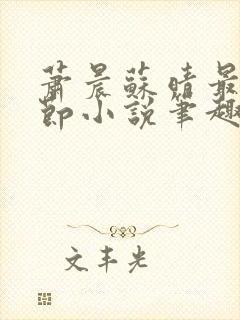 蕭晨蘇晴最
節小說筆趣
文丰光